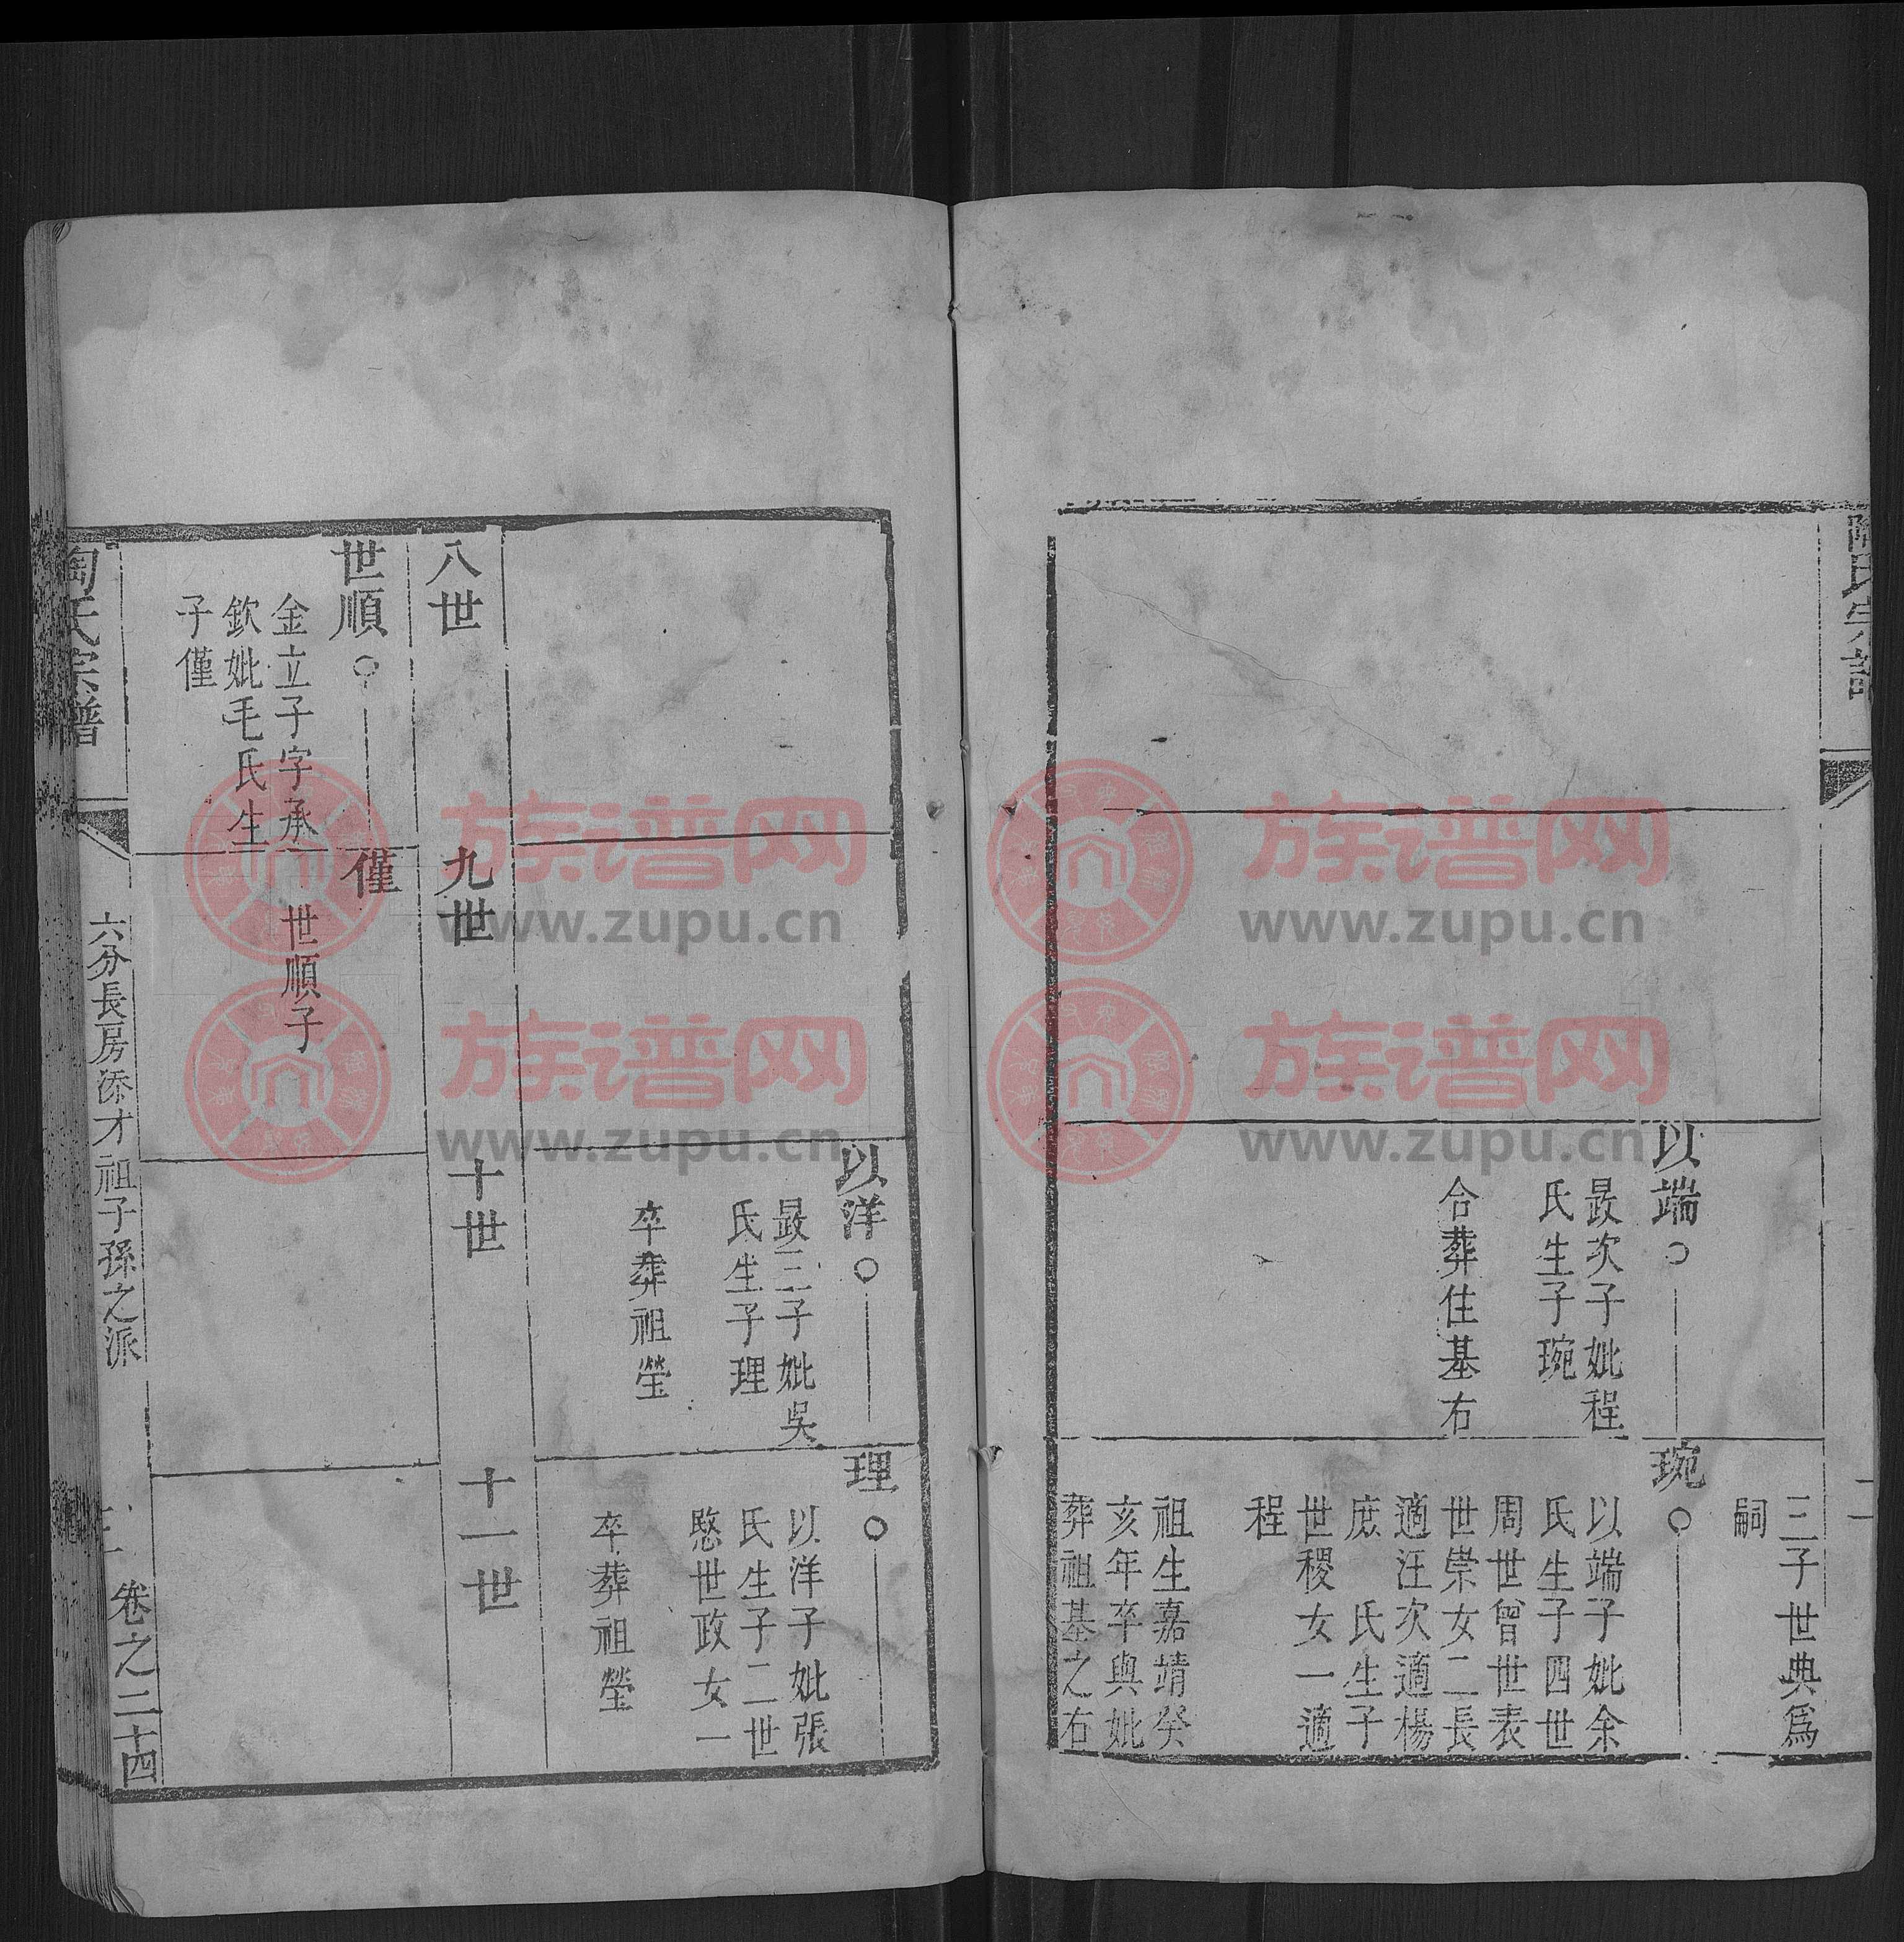 陶氏宗譜
二
三子世典爲
嗣
以端
晸次子妣程
氏生子琬
合葬住基右
琬
以端子妣余
氏生子四世
周世曾世表
世崇女二長
適汪次適楊
庶 氏生子
世稷女一適
程
祖生嘉靖癸
亥年卒與妣
葬祖基之右
以洋
晸三子妣吳
氏生子理
卒葬祖瑩
理
以洋子妣張
氏生子二世
愍世政女一
卒葬祖瑩
八世
九世
十世
十一世
世順
金立子字承
欽妣毛氏生
子僅
僅
世順子
陶氏宗譜
六分長房添才祖子孫之派
卷之二十四
族谱网
www.zupu.cn
族谱网
www.zupu.cn
族谱网
www.zupu.cn
族谱网
www.zupu.cn